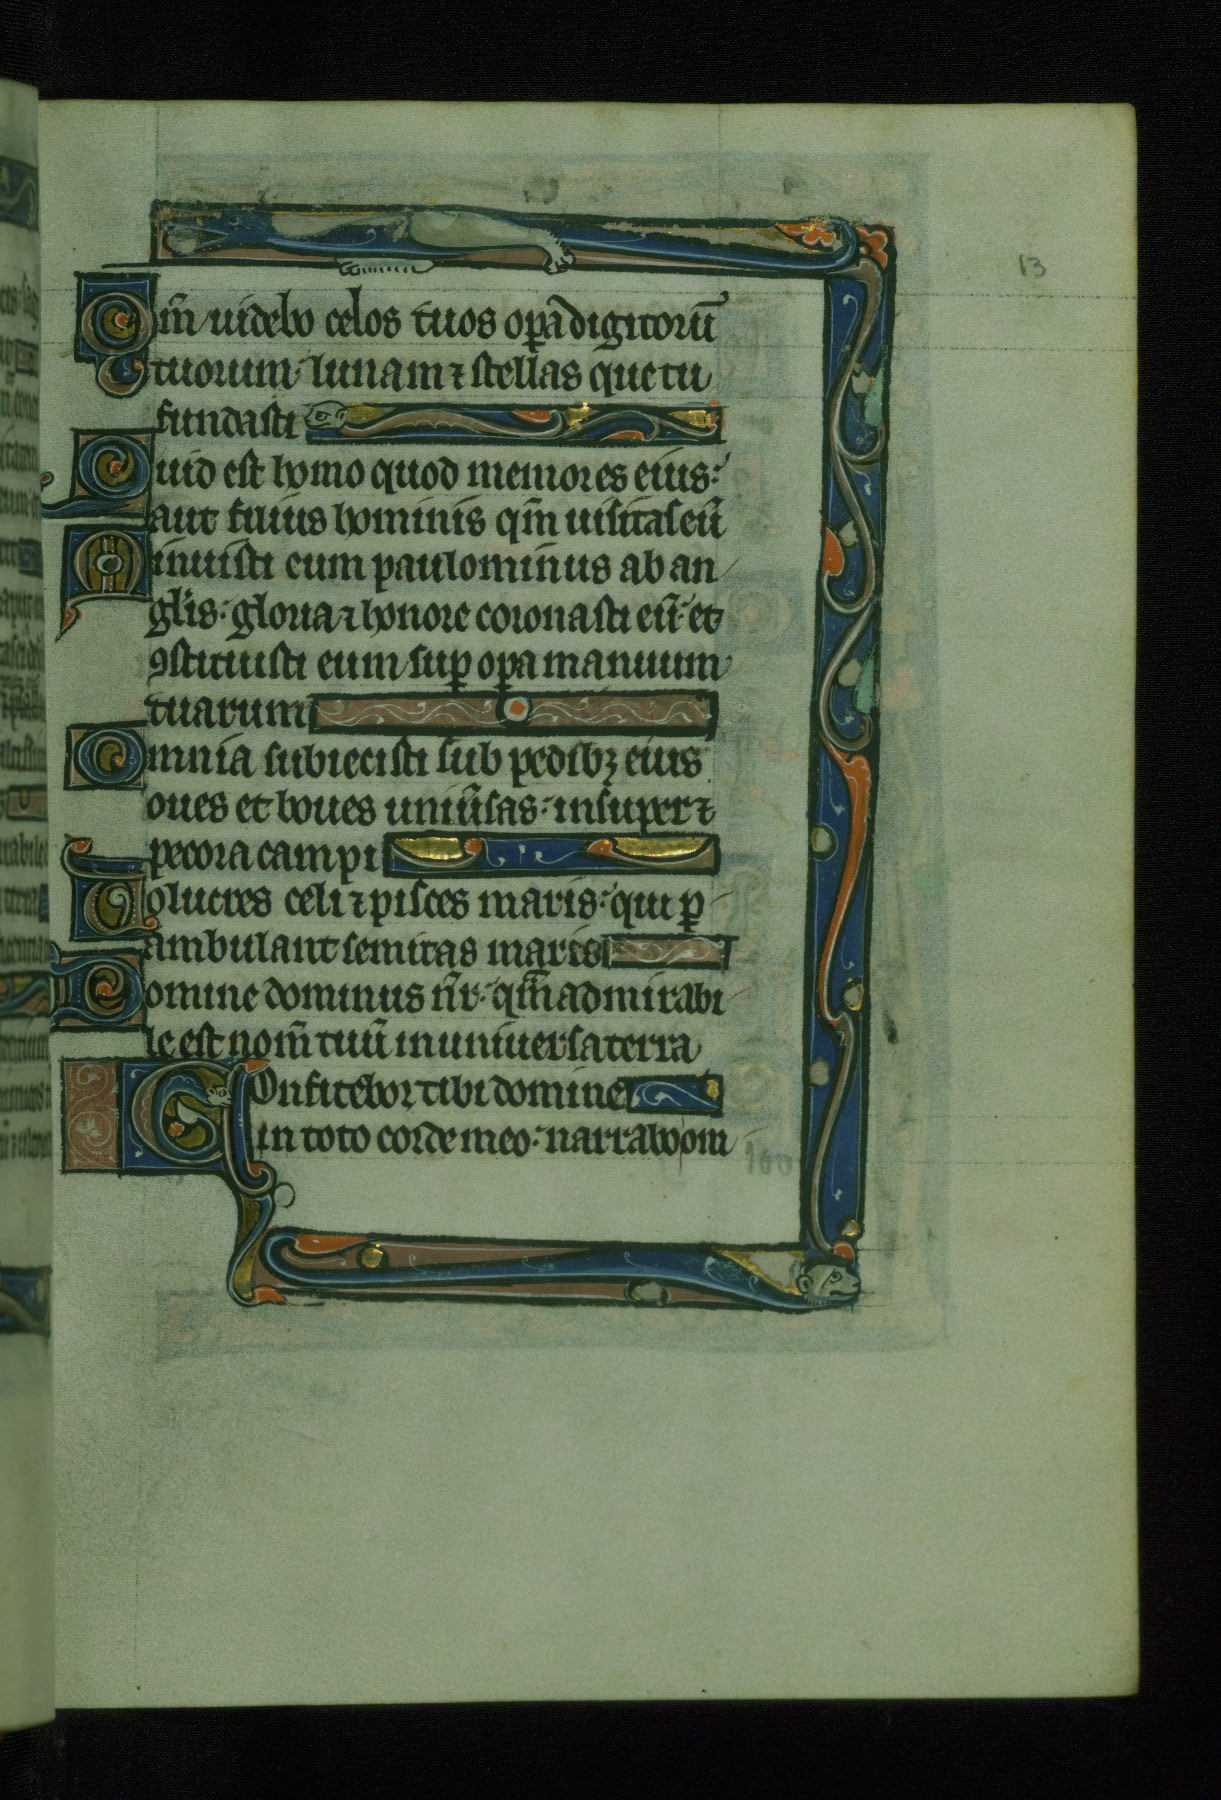 13
Qm̄ uidebo celos tuos opa digitorū
tuorum· lunam ⁊ stellas que tu
fundasti
Quid est homo quod memores eius:
aut filius hominis qm̄ uisitas eū
Minuisti eum paulominus ab an
glis: gloria ⁊ honore coronasti eū: et
ꝯstituisti eum sup opa manuum
tuarum
Omnia subiecisti sub pedibꝫ eius
oues et boues uniūsas: insuper ⁊
pecora campi
Uolucres celi ⁊ pisces maris: qui ꝑ
ambulant semitas maris
Domine dominus n̄r· qm̄ admirabi
le est nom̄ tuū in uniuersa terra
Confitebor tibi domine
in toto corde meo· narrabo om